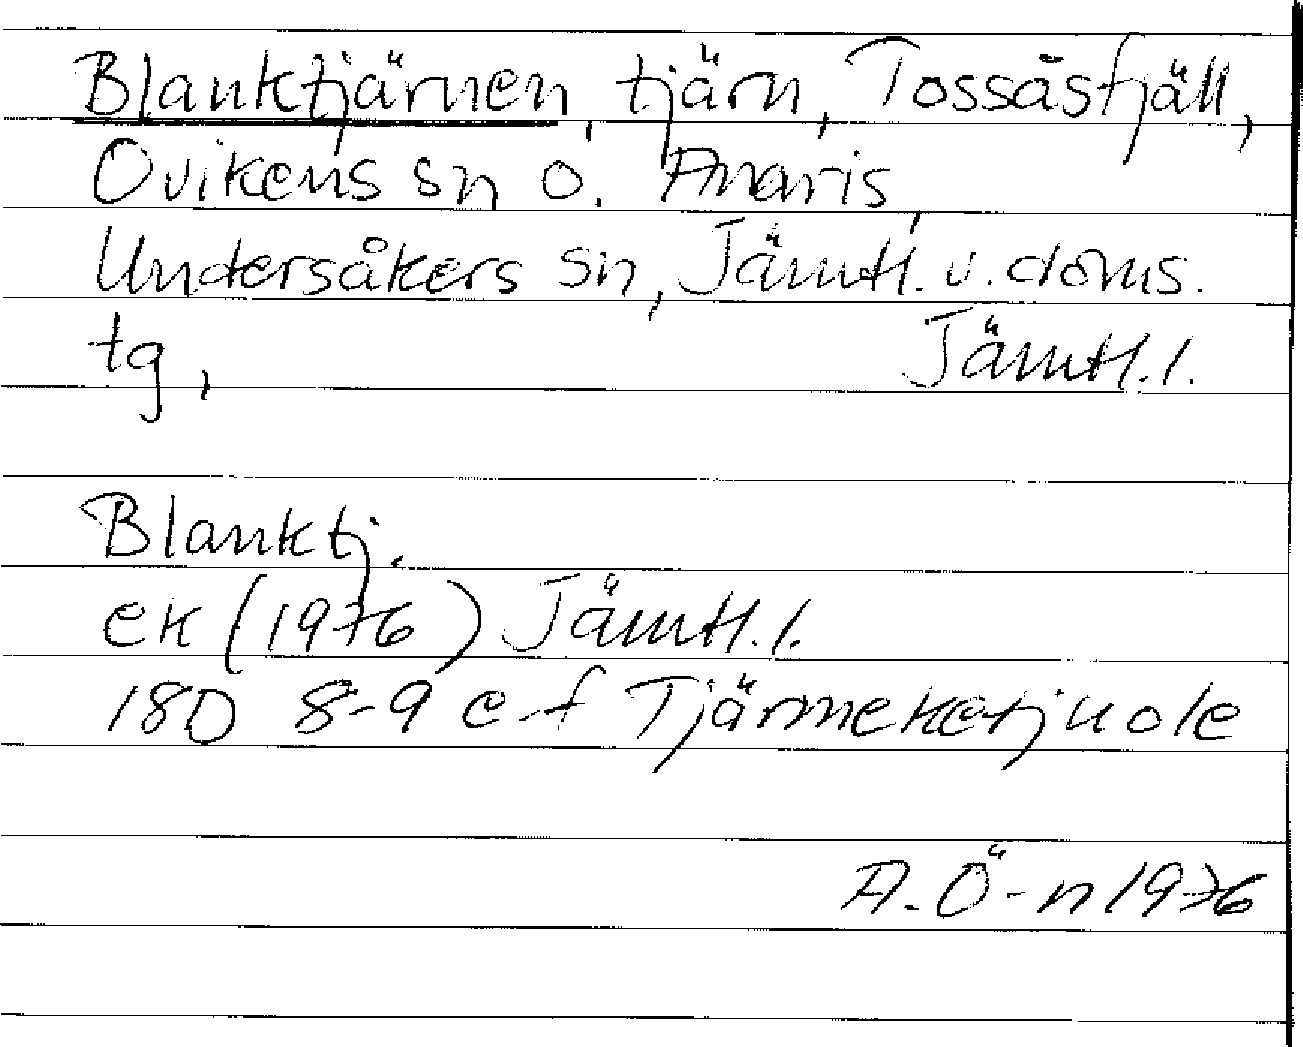 Blanktjärnen, tjärn, Tossåsfjäll,
Ovikens sn o. Anaris,
Undersåkers sn, Jämtl. v. doms.
tg, Jämtl. l.
Blanktj.
ek (1976) Jämtl. l.
18D 8-9 e-f Tjärmeketjuole
A. Ö-n 1976